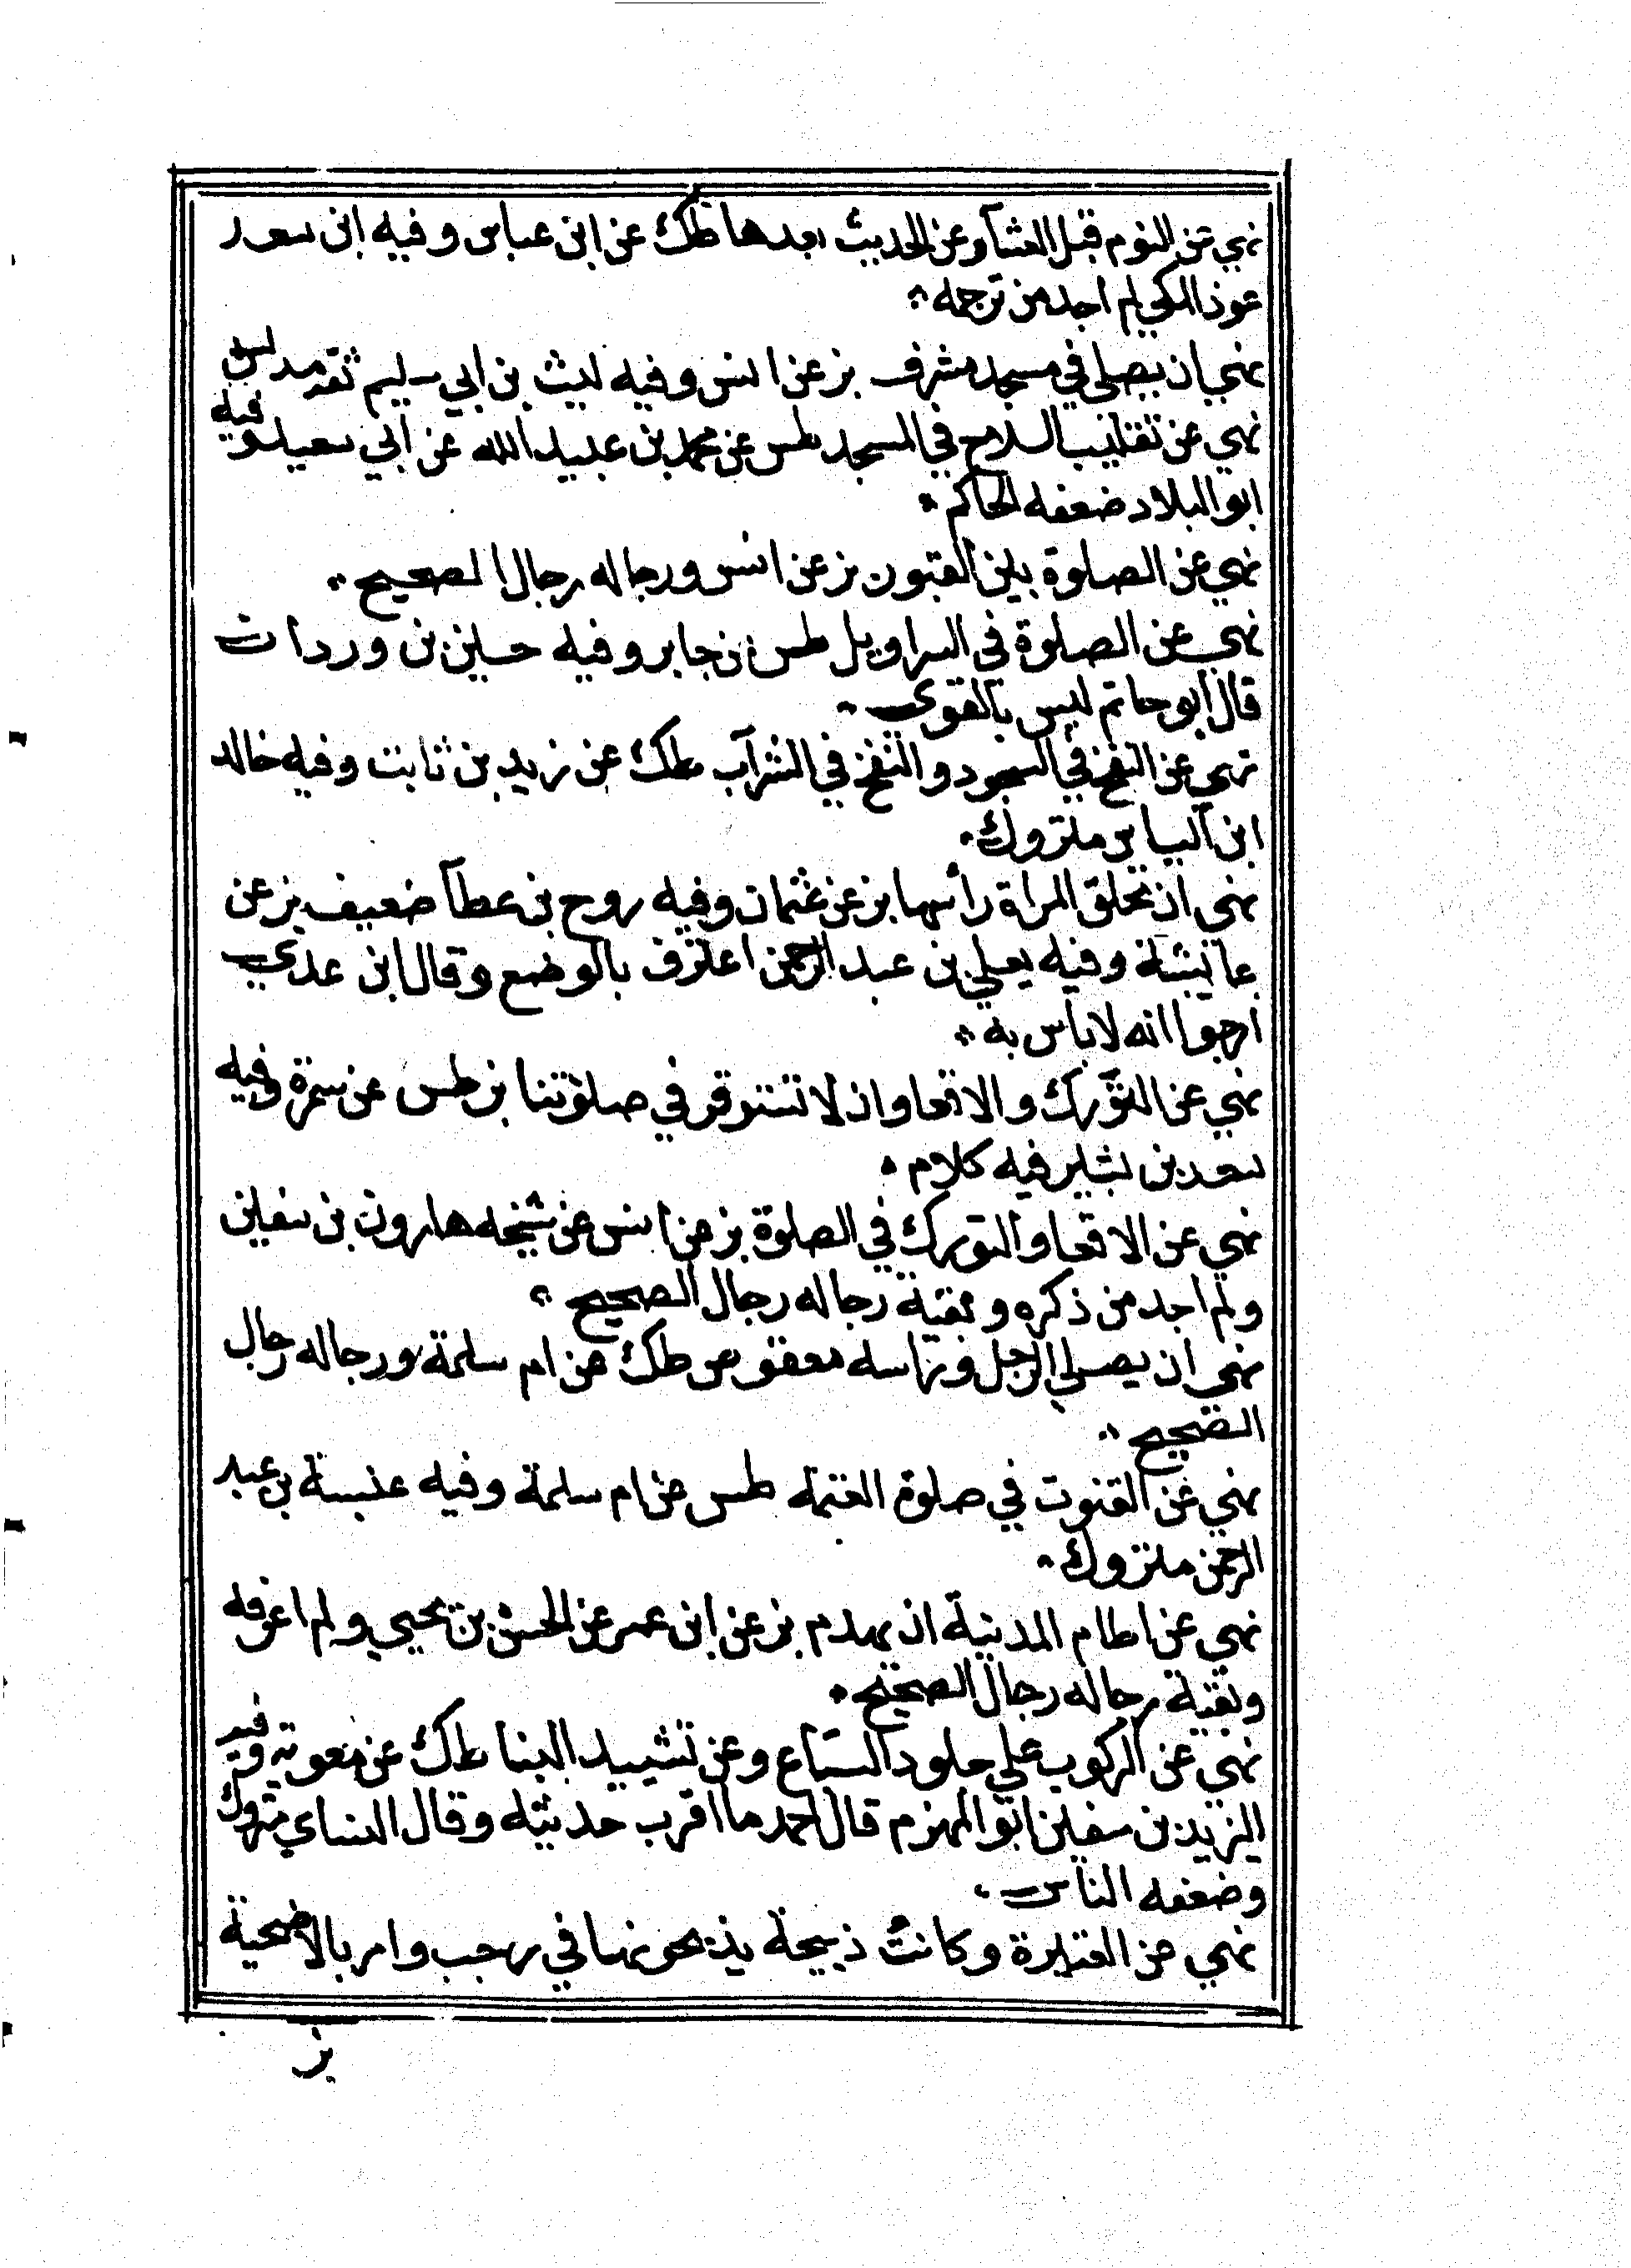 نهي عن النوم قبل العشآ وعن الحديث بعدها طك عن ابن عباس وفيه ابى سعد
عوذ المكي لم اجد من ترجمه
نهي ان يصلي في مسجد مشرف بز عن انس وفيه ليث بن ابي سليم ثقة مدلس
نهي عن تقليب السلاح في المسجد طس عن محمد بن عبيد الله عن ابي سعيد وفيه
ابو البلاد ضعفه الحاكم
نهي عن الصلوة بين القبور بز عن انس ورجاله رجال الصحيح
نهي عن الصلوة في السراويل طس عن جابر وفيه حسين بن وردان
قال ابو حاتم ليس بالقوي
نهي عن النفخ في السجود والنفخ في الشرآب طك عن زيد بن ثابت وفيه خالد
ابن آلياس متروك
نهي ان تحلق المراة رأسها بز عن عثمان وفيه روح بن عطآ ضعيف بز عن
عايشة وفيه يعلي بن عبد الرحمن اعترف بالوضع وقال ابن عدي
ارجوا انه لا باس به
نهي عن التورك والاقعا وان لا نستوفر في صلوتنا بز طس عن سمرة وفيه
سعد بن بشير فيه كلام
نهي عن الاقعا والتورك في الصلوة بز عن انس عن شيخه هارون بن سفين
ولم اجد من ذكره وبقية رجاله رجال الصحيح
نهي ان يصلي الرجل وراسه معقوص طك عن ام سلمة ورجاله رجال
الصحيح
نهي عن القنوت في صلوة العتمه طس عن ام سلمة وفيه عنبسة بن عبد
الرحمن متروك
نهي عن اطام المدينة ان يهدم بز عن ابن عمر عن الحسن بن يحيي ولم اعرفه
وبقية رجاله رجال الصحيح
نهي عن الركوب علي جلود السباع وعن تشييد البنا طك عن معوية وفيه
اليزيد بن سفين ابو المهزم قال احمد ما اقرب حديثه وقال النساي متروك
وضعفه الناس
نهي عن العتيرة وكانت ذبيحة يذبحونها في رجب وامر بالاضحية
بز